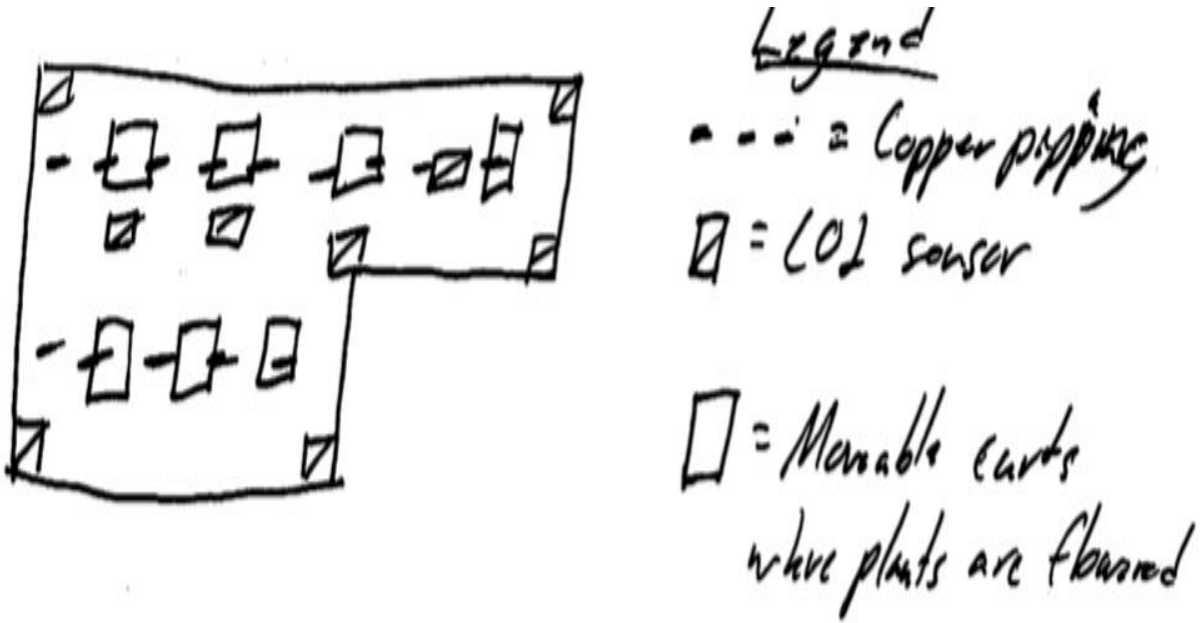 Legend
- - - = Copper pipping
= CO2 sensor
= Movable carts
where plants are flowered